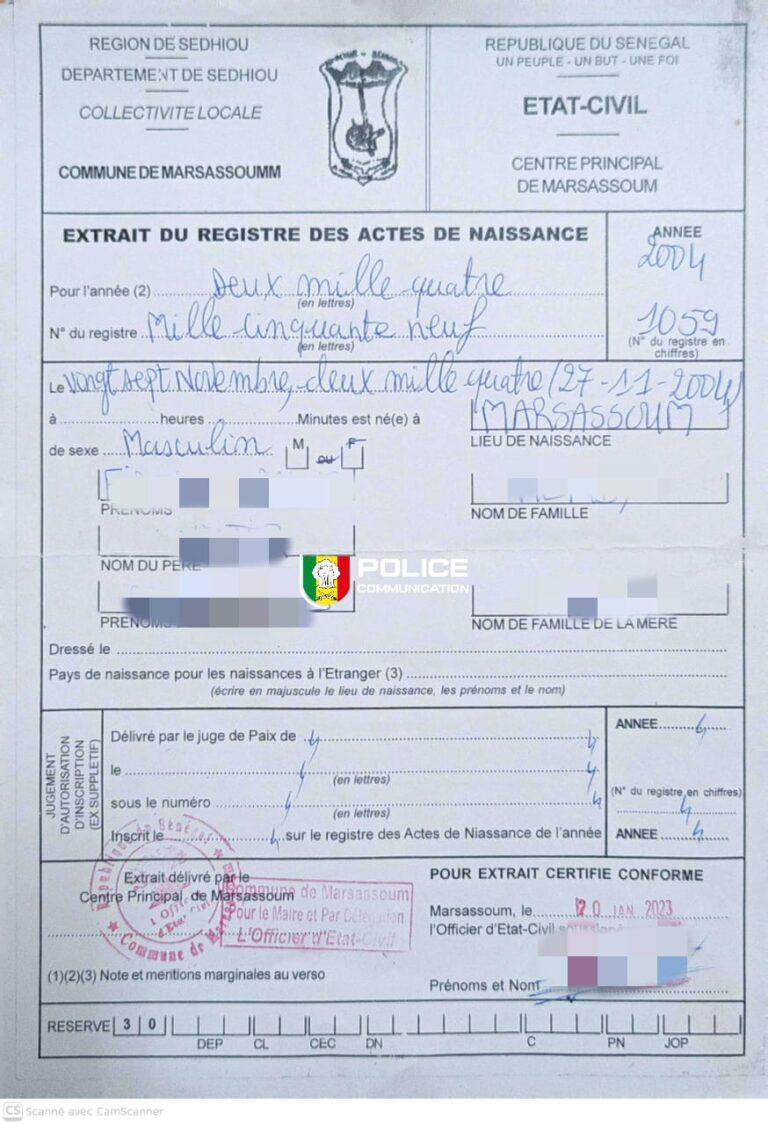 REGION DE SEDHIOU
DEPARTEMENT DE SEDHIOU
COLLECTIVITE LOCALE
COMMUNE DE MARSASSOUMM
REPUBLIQUE DU SENEGAL
UN PEUPLE - UN BUT - UNE FOI
ETAT-CIVIL
CENTRE PRINCIPAL
DE MARSASSOUM
EXTRAIT DU REGISTRE DES ACTES DE NAISSANCE
ANNEE
2004
Pour l'année (2) Deux mille quatre
(en lettres)
N° du registre Mille cinquante neuf
(en lettres)
1059
(N° du registre en
chiffres)
Le vingt sept Novembre, deux mille quatre (27-11-2004)
à heures Minutes est né(e) à MARSASSOUM
LIEU DE NAISSANCE
de sexe Masculin M ou F
PRENOMS
NOM DE FAMILLE
NOM DU PERE
POLICE
COMMUNICATION
PRENOMS
NOM DE FAMILLE DE LA MERE
Dressé le
Pays de naissance pour les naissances à l'Etranger (3)
(écrire en majuscule le lieu de naissance, les prénoms et le nom)
JUGEMENT
D'AUTORISATION
D'INSCRIPTION
(EX SUPPLETIF)
Délivré par le juge de Paix de
le
(en lettres)
sous le numéro
(en lettres)
Inscrit le sur le registre des Actes de Niassance de l'année
ANNEE
(N° du registre en chiffres)
ANNEE
Extrait délivré par le
Centre Principal de Marsassoum
République du Sénégal
Commune de Marsassoum
Pour le Maire et Par Délégation
L'Officier d'Etat-Civil
(1)(2)(3) Note et mentions marginales au verso
POUR EXTRAIT CERTIFIE CONFORME
Marsassoum, le 20 JAN 2023
l'Officier d'Etat-Civil
Prénoms et Nom
RESERVE 3 0
DEP CL CEC DN C PN JOP
CS Scanné avec CamScanner